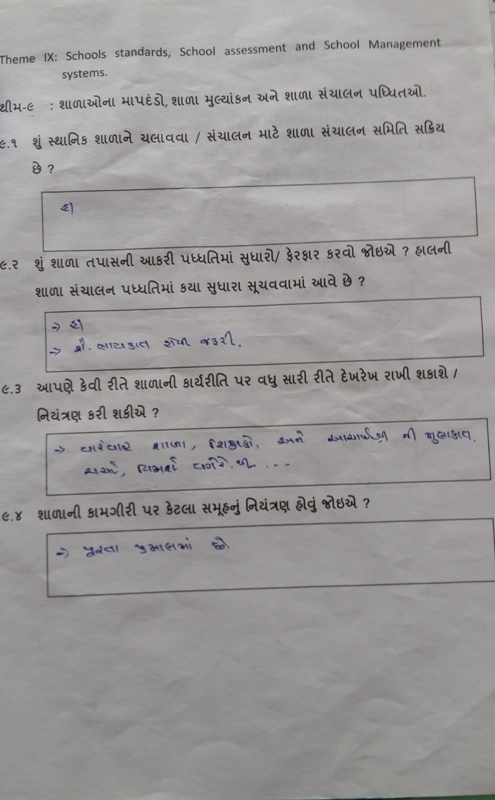 Theme IX: Schools standards, School assessment and School Management
systems.
થીમ-૯ : શાળાઓના માપદંડો, શાળા મુલ્યાંકન અને શાળા સંચાલન પધ્ધિતઓ.
૯.૧ શું સ્થાનિક શાળાને ચલાવવા / સંચાલન માટે શાળા સંચાલન સમિતિ સક્રિય
છે ?
હા
૯.૨ શું શાળા તપાસની આકરી પધ્ધતિમાં સુધારો/ ફેરફાર કરવો જોઇએ ? હાલની
શાળા સંચાલન પધ્ધતિમાં કયા સુધારા સૂચવવામાં આવે છે ?
→ હા
→ શૈ. લાયકાત હોવી જરૂરી.
૯.૩ આપણે કેવી રીતે શાળાની કાર્યરીતિ પર વધુ સારી રીતે દેખરેખ રાખી શકાશે /
નિયંત્રણ કરી શકીએ ?
→ વારંવાર શાળા, શિક્ષકો, અને આચાર્યશ્રી ની મુલાકાત,
ચર્ચા, વિમર્શ વગેરે થી ...
૯.૪ શાળાની કામગીરી પર કેટલા સમૂહનું નિયંત્રણ હોવું જોઇએ ?
→ પૂરતા પ્રમાણમાં છે.